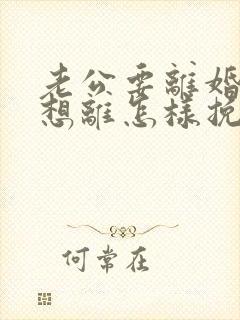 老公要離婚
想離怎樣挽
何常在